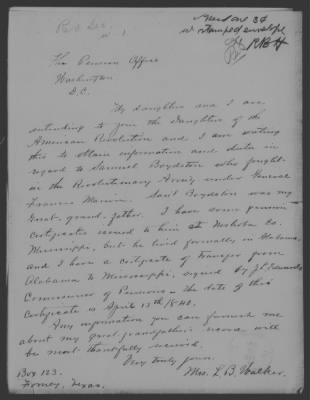 Rev Dec.
Used one 3¢
stamped envelope
RBH
The Pension Office
Washington
D.C.
My daughter and I are
intending to join the Daughters of the
American Revolution and I am writing
this to obtain information and data in
regard to Samuel Boydston who fought
in the Revolutionary Army under General
Francis Marion. Said Boydston was my
Great-grand-father. I have some pension
certificates issued to him at Neshoba Co.
Mississippi, but he lived formally in Alabama,
and I have a certificate of transfer from
Alabama to Mississippi, signed by J L Edwards
Commissioner of Pensions - the date of this
certificate is April 13th 1840.
Any information you can furnish me
about my great grandfather's record will
be most thankfully received.
Very truly yours,
Mrs. L B Walker.
Box 123.
Forney, Texas.